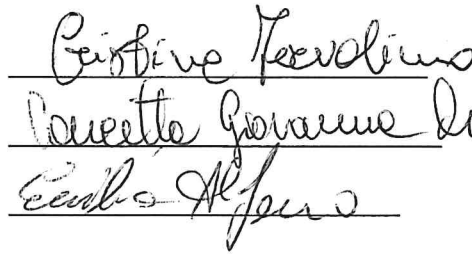 Cristina Iervolino
Concetta Giovanna Di
Emilia Alfano